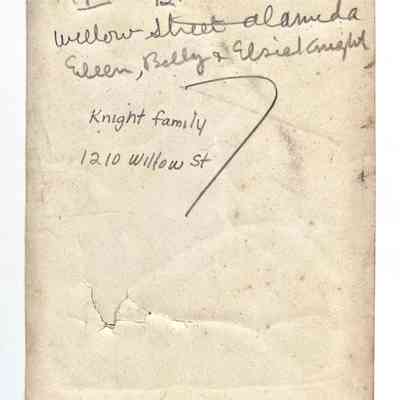 Willow Street Alameda
Eileen, Billy & Elsie Knight
Knight family
1210 Willow St